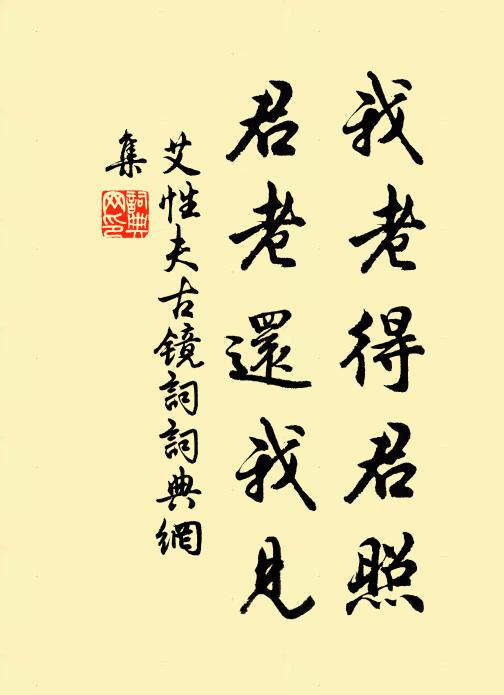 我老得君照
君老還我見
艾性夫古镜詞詞典網
集
詞典
网印